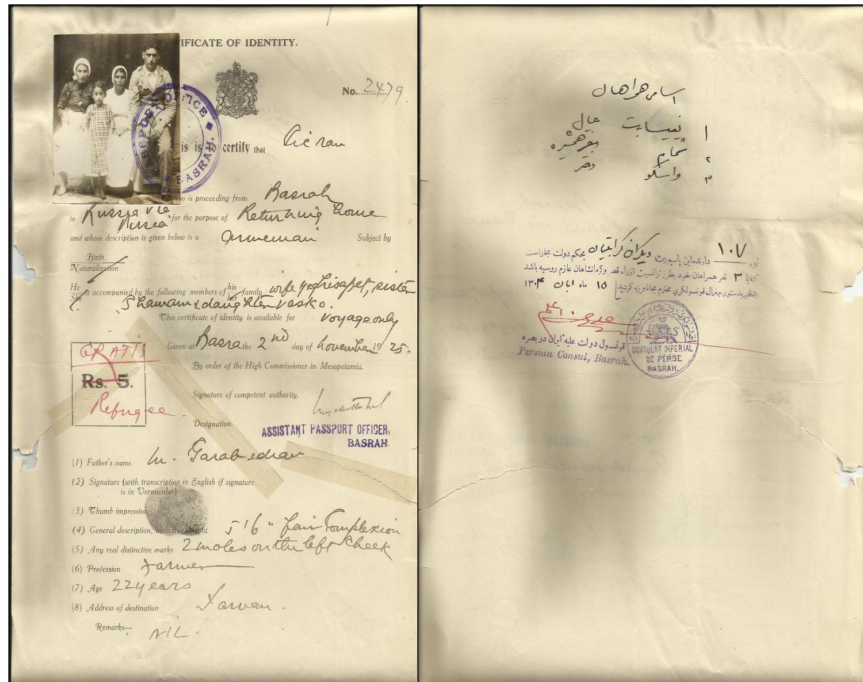 CERTIFICATE OF IDENTITY.
No. 2479
PASSPORT OFFICE
BASRAH.
This is to certify that
who is proceeding from Basrah
to Russia via Persia for the purpose of Returning home
and whose description is given below is a Armenian Subject by
Birth
Naturalization
He
She is accompanied by the following members of his
her family wife Yeghisapet, sister
Shamam & daughter Vasko.
This certificate of identity is available for voyage only
Given at Basra the 2nd day of November 1925.
GRATIS
Rs. 5.
Refugee.
By order of the High Commissioner in Mesopotamia.
Signature of competent authority.
Designation
ASSISTANT PASSPORT OFFICER,
BASRAH.
(1) Father's name
(2) Signature (with transcription in English if signature
is in Vernacular)
(3) Thumb impression
(4) General description, including height 5'6" fair Complexion
(5) Any real distinctive marks 2 moles on the left Cheek
(6) Profession Farmer
(7) Age 22 years
(8) Address of destination
Remarks— NIL.
اسامی همراهان
۱ عیال
۲ همشیره
۳ واسکو دختر
۱۰۷
دارنده این پاسپورت بحکم دولت مجاز است
۳ نفر همراهان خود بطور ترانزیت از راه قصر و کرمانشاهان عازم روسیه باشد
۱۵ ماه ابان ۱۳۰۴
قونسول دولت علیه ایران در بصره
Persian Consul, Basrah.
CONSULAT IMPERIAL
DE PERSE
BASRAH.